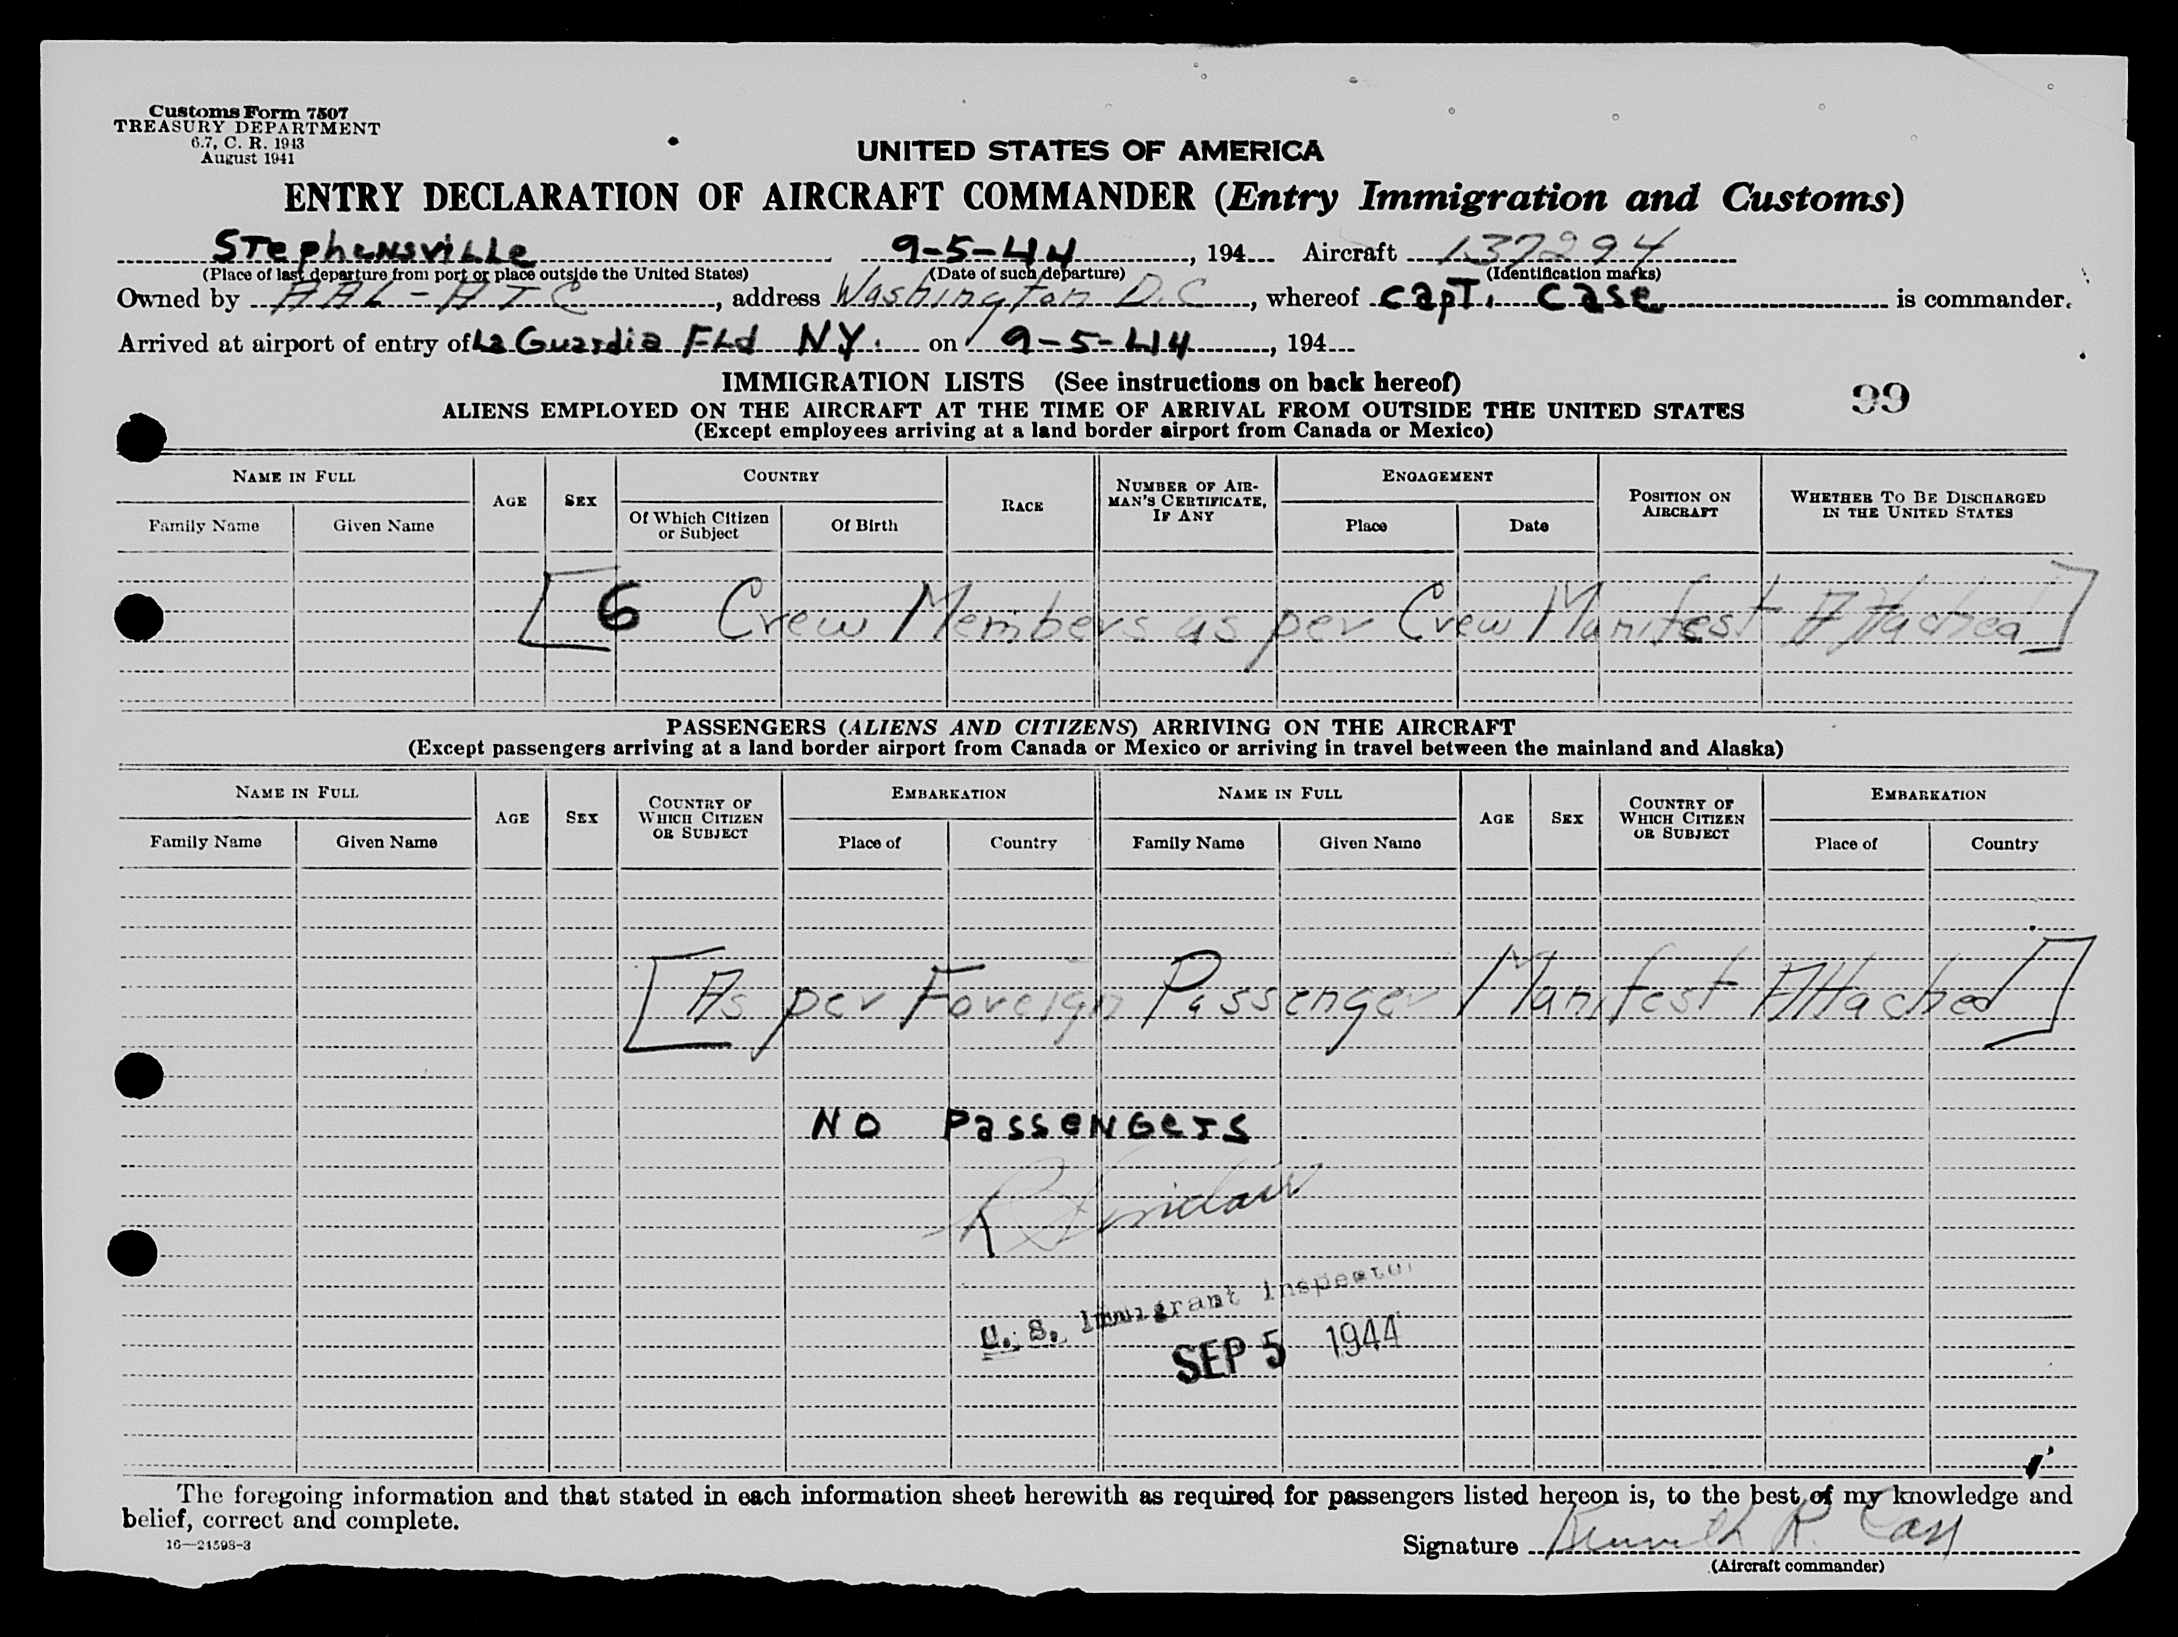 Customs Form 7507
TREASURY DEPARTMENT
6.7, C. R. 1943
August 1941
UNITED STATES OF AMERICA
ENTRY DECLARATION OF AIRCRAFT COMMANDER (Entry Immigration and Customs)
Stephensville 9-5-44, 194 Aircraft 137294
(Place of last departure from port or place outside the United States) (Date of such departure) (Identification marks)
Owned by AAL-ATC, address Washington D.C, whereof Capt. Case is commander.
Arrived at airport of entry of La Guardia Fld NY. on 9-5-44, 194
IMMIGRATION LISTS (See instructions on back hereof)
99
ALIENS EMPLOYED ON THE AIRCRAFT AT THE TIME OF ARRIVAL FROM OUTSIDE THE UNITED STATES
(Except employees arriving at a land border airport from Canada or Mexico)
NAME IN FULL AGE SEX COUNTRY RACE NUMBER OF AIRMAN'S CERTIFICATE, IF ANY ENGAGEMENT POSITION ON AIRCRAFT WHETHER TO BE DISCHARGED IN THE UNITED STATES
Family Name Given Name Of Which Citizen or Subject Of Birth Place Date
[6 Crew Members as per Crew Manifest Attached]
PASSENGERS (ALIENS AND CITIZENS) ARRIVING ON THE AIRCRAFT
(Except passengers arriving at a land border airport from Canada or Mexico or arriving in travel between the mainland and Alaska)
NAME IN FULL AGE SEX COUNTRY OF WHICH CITIZEN OR SUBJECT EMBARKATION NAME IN FULL AGE SEX COUNTRY OF WHICH CITIZEN OR SUBJECT EMBARKATION
Family Name Given Name Place of Country Family Name Given Name Place of Country
[As per Foreign Passenger Manifest Attached]
NO PassenGers
R Sinclair
U. S. Immigrant Inspector
SEP 5 1944
The foregoing information and that stated in each information sheet herewith as required for passengers listed hereon is, to the best of my knowledge and
belief, correct and complete.
16—21598-3
Signature Kenneth R. Case
(Aircraft commander)